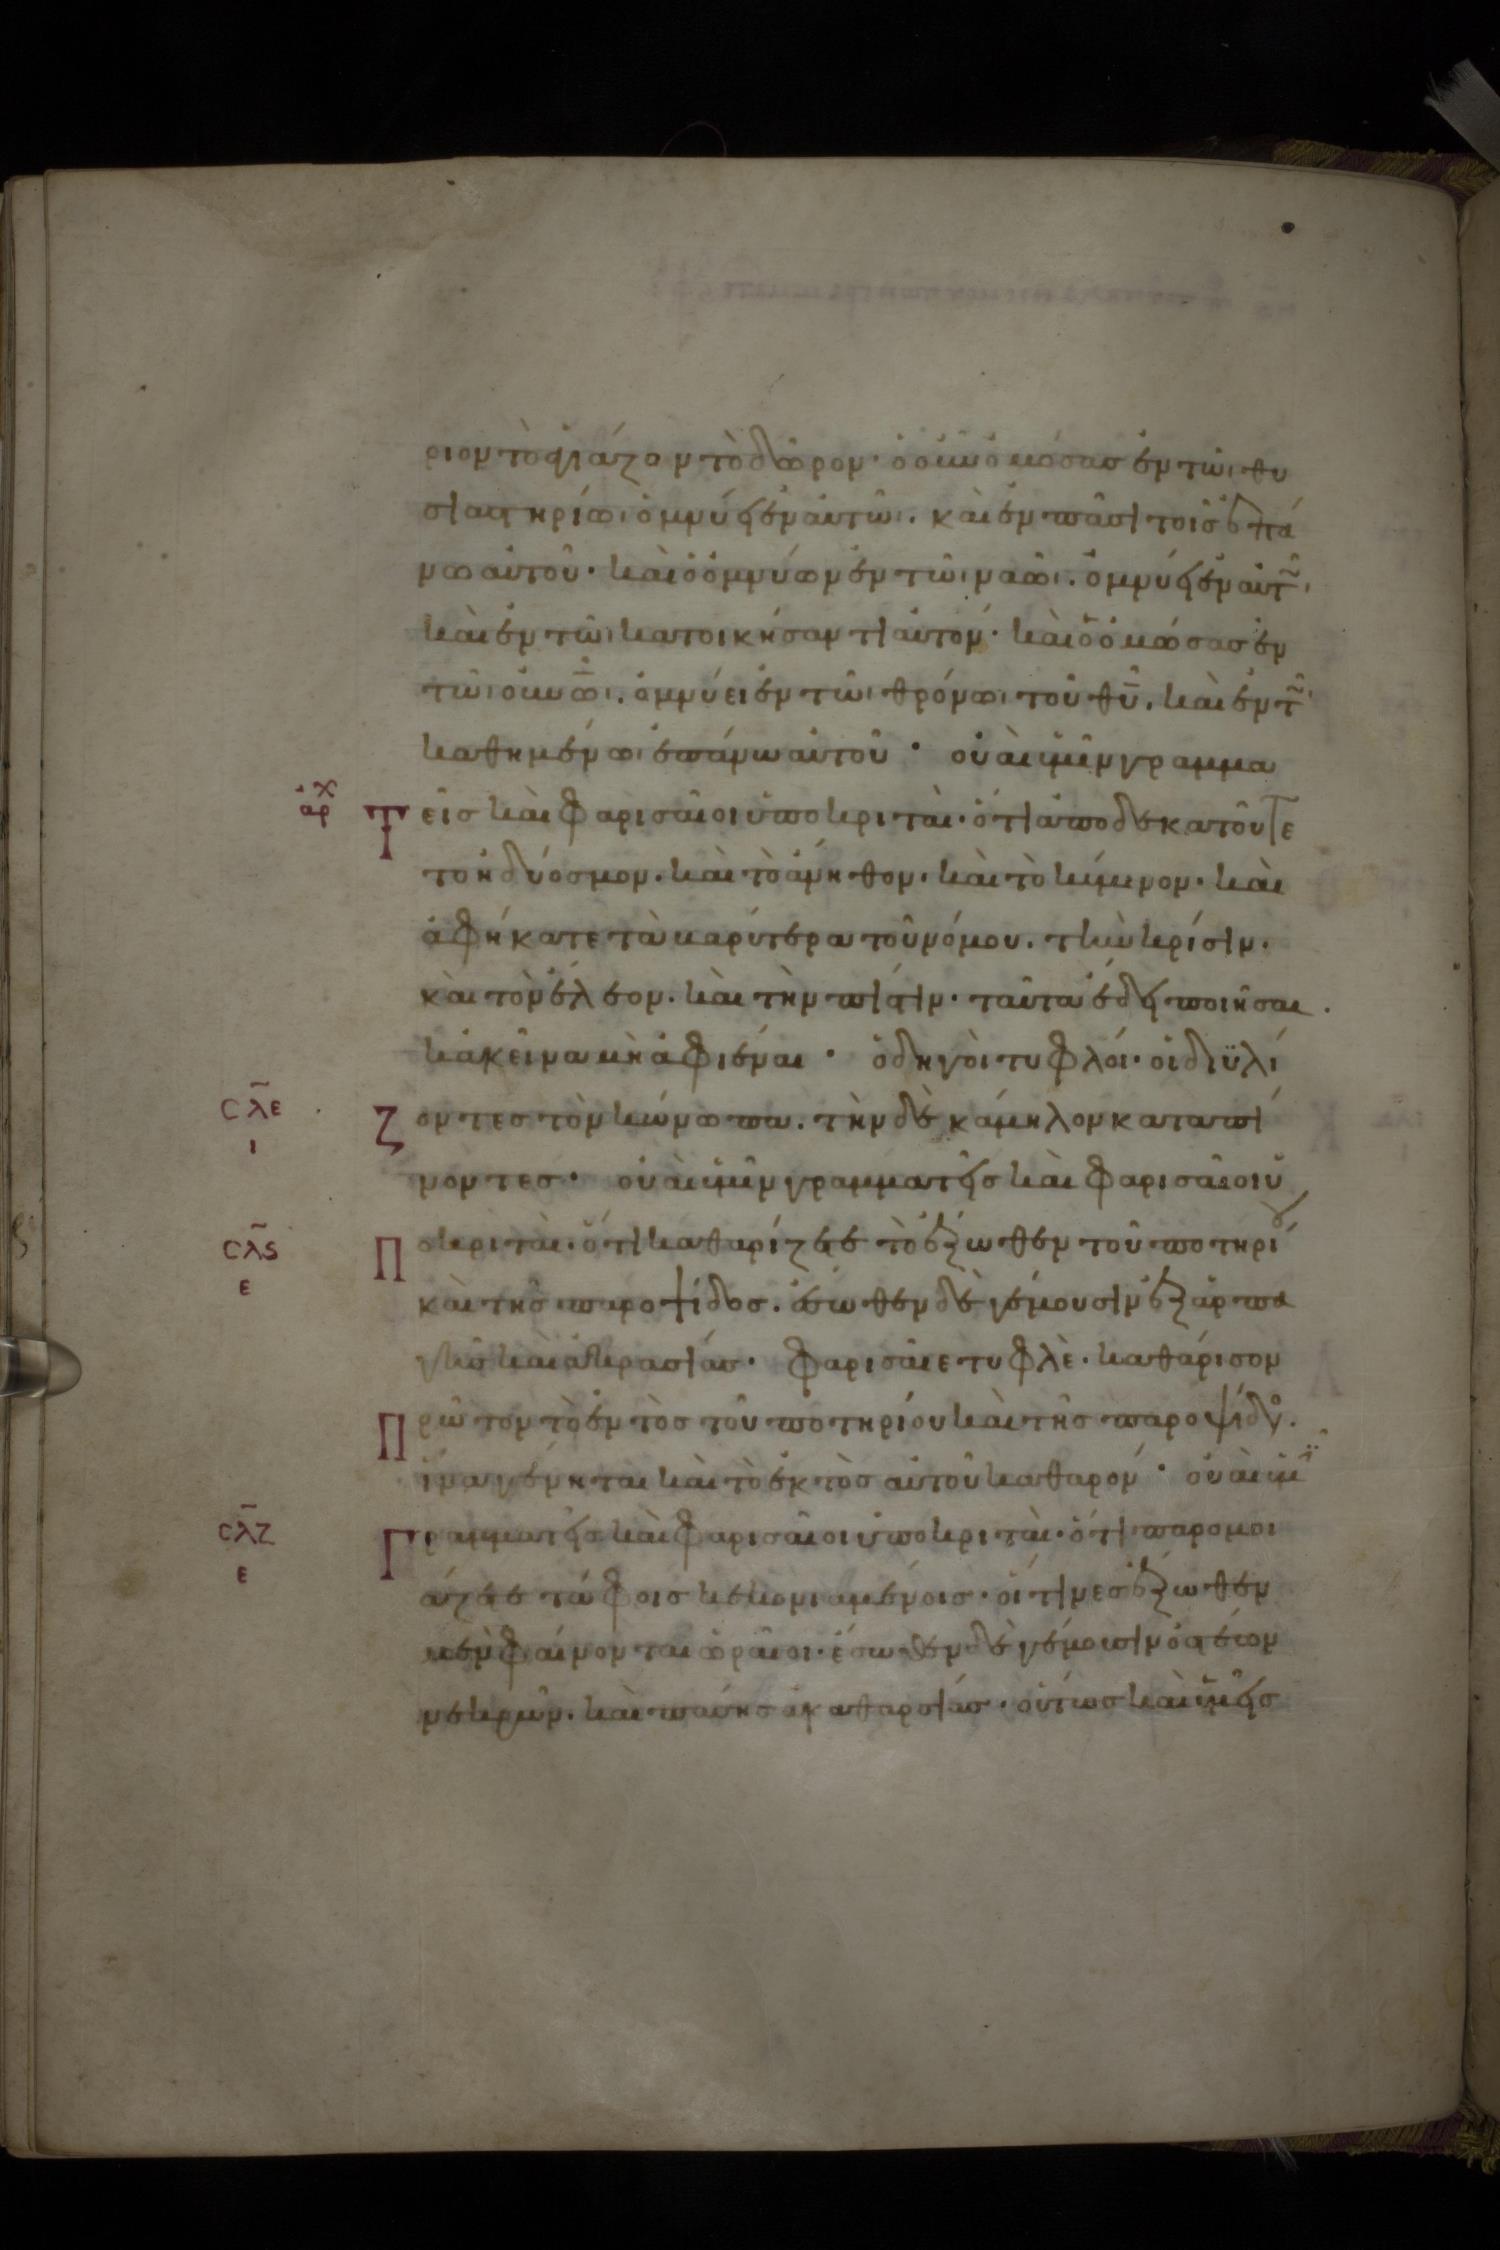 ριον τὸ ἁγιάζον τὸ δῶρον· ὁ οὖν ὀμόσας ἐν τῶι θυ
σιαστηρίωι ὀμνύει ἐν αὐτῶι. καὶ ἐν πᾶσι τοῖς ἐπά
νω αὐτοῦ· καὶ ὁ ὀμνύων ἐν τῶι ναῶι. ὀμνύει ἐν αὐτ῀ι
καὶ ἐν τῶι κατοικήσαντι αὐτόν· καὶ ὁ ὀμώσας ἐν
τῶι οὐνῶι. ὀμνύει ἐν τῶι θρόνωι τοῦ θῦ. καὶ ἐν τ῀ι
καθημένωι ἐπάνω αὐτοῦ· οὐαὶ ὑμῖν γραμμα
αρχ Τεῖς καὶ Φαρισαῖοι ὑποκριταὶ· ὅτι ἀποδεκατοῦτε
το ἡδύοσμον. καὶ τὸ ἄνηθον. καὶ τὸ κύμινον. καὶ
ἀφήκατε τὰ βαρύτερα τοῦ νόμου. τὴν κρίσιν.
καὶ τὸν ἔλεον. καὶ τὴν πίστιν. ταῦτα ἔδει ποιῆσαι.
κἀκεῖνα μὴ ἀφιέναι· ὁδηγοὶ τυφλοί· οἱ διϋλί
ϲλε ι Ζοντες τὸν κώνωπα. τὴν δὲ κάμηλον καταπί
νοντες· οὐαὶ ὑμῖν γραμματεῖς καὶ Φαρισαῖοι ὑ
ϲλϛ ε Ποκριταὶ. ὅτι καθαρίζετε τὸ ἔξωθεν τοῦ ποτηρίου
καὶ τῆς παροψίδος. ἔσωθεν δὲ γέμουσιν ἐξ ἁρπα
γῆς καὶ ἀκρασίας· Φαρισαῖε τυφλὲ. καθάρισον
Πρῶτον τὸ ἐντὸς τοῦ ποτηρίου καὶ τῆς παροψίδο.
ἵνα γένηται καὶ τὸ ἐκτὸς αὐτοῦ καθαρόν· οὐαὶ ὑμῖ
ϲλζ ε Γραμματεῖς καὶ Φαρισαῖοι ὑποκριταὶ. ὅτι παρομοι
άζετε τάφοις κεκονιαμένοις. οἵτινες ἔξωθεν
μὲν φαίνονται ὡραῖοι. ἔσωθεν δὲ γέμουσιν ὀστέων
νεκρῶν. καὶ πάσης ἀκαθαρσίας. οὕτως καὶ ὑμεῖς